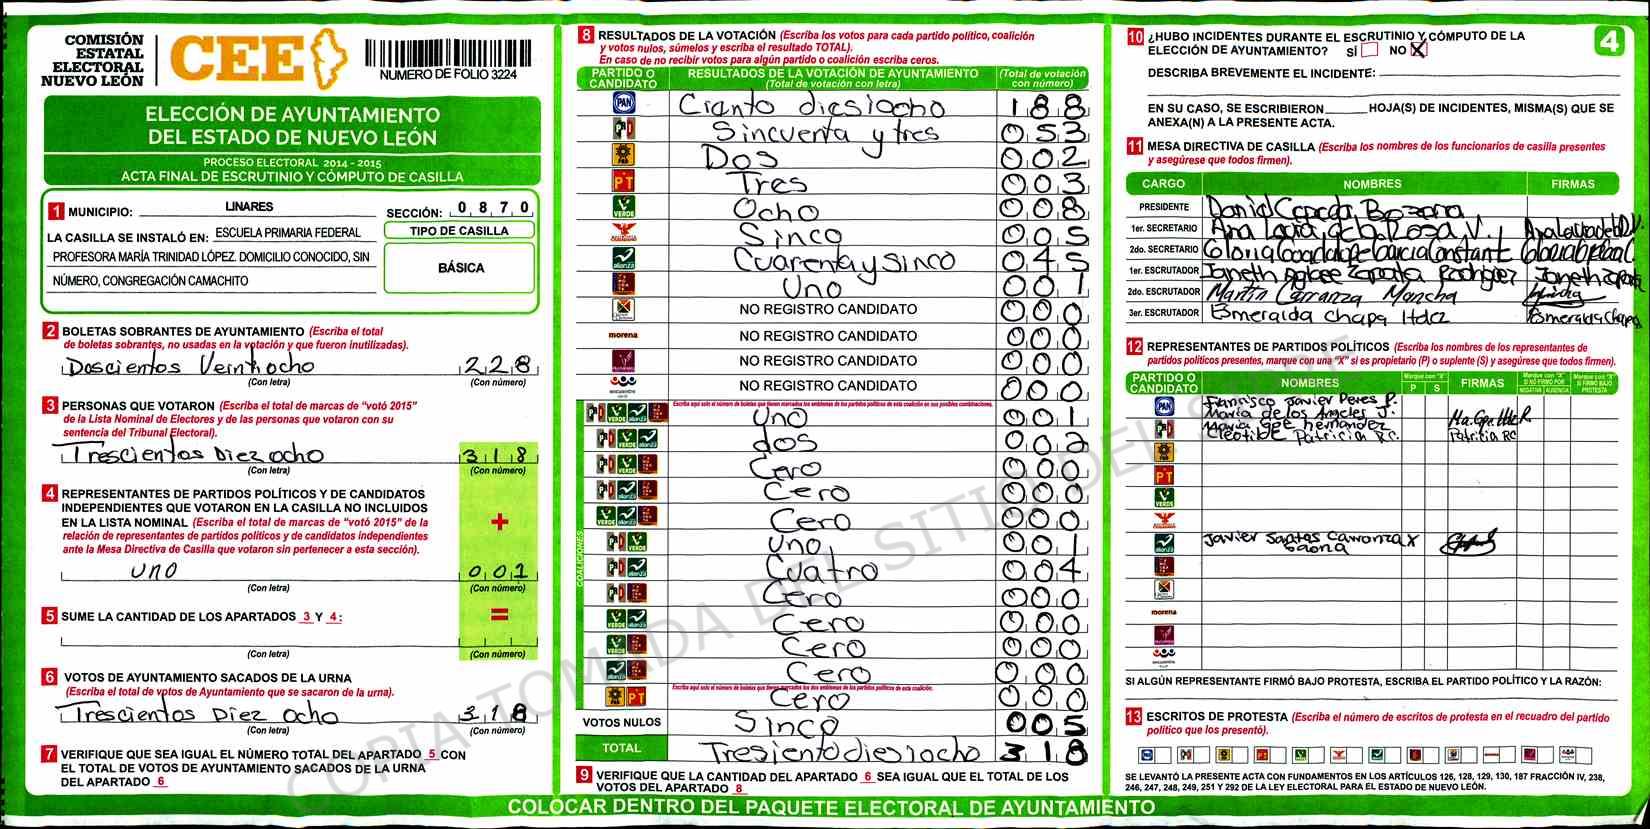 COMISIÓN
ESTATAL
ELECTORAL
NUEVO LEÓN
CEE
NUMERO DE FOLIO 3224
ELECCIÓN DE AYUNTAMIENTO
DEL ESTADO DE NUEVO LEÓN
PROCESO ELECTORAL 2014 - 2015
ACTA FINAL DE ESCRUTINIO Y CÓMPUTO DE CASILLA
1 MUNICIPIO: LINARES SECCIÓN: 0 8 7 0
LA CASILLA SE INSTALÓ EN: ESCUELA PRIMARIA FEDERAL
PROFESORA MARÍA TRINIDAD LÓPEZ. DOMICILIO CONOCIDO, SIN
NÚMERO, CONGREGACIÓN CAMACHITO
TIPO DE CASILLA
BÁSICA
2 BOLETAS SOBRANTES DE AYUNTAMIENTO (Escriba el total
de boletas sobrantes, no usadas en la votación y que fueron inutilizadas).
Doscientos Veintiocho 2 2 8
(Con letra) (Con número)
3 PERSONAS QUE VOTARON (Escriba el total de marcas de "votó 2015"
de la Lista Nominal de Electores y de las personas que votaron con su
sentencia del Tribunal Electoral).
Trescientos Diez ocho 3 1 8
(Con letra) (Con número)
4 REPRESENTANTES DE PARTIDOS POLÍTICOS Y DE CANDIDATOS
INDEPENDIENTES QUE VOTARON EN LA CASILLA NO INCLUIDOS
EN LA LISTA NOMINAL (Escriba el total de marcas de "votó 2015" de la
relación de representantes de partidos políticos y de candidatos independientes
ante la Mesa Directiva de Casilla que votaron sin pertenecer a esta sección).
+
uno 0 0 1
(Con letra) (Con número)
5 SUME LA CANTIDAD DE LOS APARTADOS 3 Y 4: =
(Con letra) (Con número)
6 VOTOS DE AYUNTAMIENTO SACADOS DE LA URNA
(Escriba el total de votos de Ayuntamiento que se sacaron de la urna).
Trescientos Diez ocho 3 1 8
(Con letra) (Con número)
7 VERIFIQUE QUE SEA IGUAL EL NÚMERO TOTAL DEL APARTADO 5 CON
EL TOTAL DE VOTOS DE AYUNTAMIENTO SACADOS DE LA URNA
DEL APARTADO 6
8 RESULTADOS DE LA VOTACIÓN (Escriba los votos para cada partido político, coalición
y votos nulos, súmelos y escriba el resultado TOTAL).
En caso de no recibir votos para algún partido o coalición escriba ceros.
PARTIDO O CANDIDATO RESULTADOS DE LA VOTACIÓN DE AYUNTAMIENTO (Total de votación con letra) (Total de votación con número)
PAN Cianto diesiocho 1 8 8
PRI Sincuenta y tres 0 5 3
PRD Dos 0 0 2
PT Tres 0 0 3
VERDE Ocho 0 0 8
Sinco 0 0 5
alianza Cuarenta y Sinco 0 4 5
Uno 0 0 1
NO REGISTRO CANDIDATO 0 0 0
morena NO REGISTRO CANDIDATO 0 0 0
NO REGISTRO CANDIDATO 0 0 0
NO REGISTRO CANDIDATO 0 0 0
COALICIONES
Escriba aquí solo el número de boletas que tienen marcados los emblemas de los partidos políticos de esta coalición en sus posibles combinaciones.
Uno 0 0 1
dos 0 0 2
Cero 0 0 0
Cero 0 0 0
Cero 0 0 0
Uno 0 0 1
Cuatro 0 0 4
Cero 0 0 0
Cero 0 0 0
Cero 0 0 0
Cero 0 0 0
Escriba aquí solo el número de boletas que tienen marcados los dos emblemas de los partidos políticos de esta coalición.
PRD PT Cero 0 0 0
VOTOS NULOS Sinco 0 0 5
TOTAL Tresiento diesiocho 3 1 8
9 VERIFIQUE QUE LA CANTIDAD DEL APARTADO 6 SEA IGUAL QUE EL TOTAL DE LOS
VOTOS DEL APARTADO 8
10 ¿HUBO INCIDENTES DURANTE EL ESCRUTINIO Y CÓMPUTO DE LA
ELECCIÓN DE AYUNTAMIENTO? SÍ NO X
4
DESCRIBA BREVEMENTE EL INCIDENTE:
EN SU CASO, SE ESCRIBIERON HOJA(S) DE INCIDENTES, MISMA(S) QUE SE
ANEXA(N) A LA PRESENTE ACTA.
11 MESA DIRECTIVA DE CASILLA (Escriba los nombres de los funcionarios de casilla presentes
y asegúrese que todos firmen).
CARGO NOMBRES FIRMAS
PRESIDENTE Daniel Cepeda
1er. SECRETARIO Ana Laura de la Rosa V.
2do. SECRETARIO Gloria Guadalupe Garcia Constante
1er. ESCRUTADOR Janeth Zapata Rodriguez Janeth Zapata
2do. ESCRUTADOR Martin Carranza Mancha
3er. ESCRUTADOR Esmeralda Chapa Hdez Esmeralda Chapa
12 REPRESENTANTES DE PARTIDOS POLÍTICOS (Escriba los nombres de los representantes de
partidos políticos presentes, marque con una "X" si es propietario (P) o suplente (S) y asegúrese que todos firmen).
PARTIDO O CANDIDATO NOMBRES Marque con "X" P S FIRMAS Marque con "X" SI NO FIRMÓ POR NEGATIVA AUSENCIA Marque con "X" SI FIRMÓ BAJO PROTESTA
PAN Francisco Javier Peres P.
Maria de los Angeles J.
PRI Maria Gpe hernandez
Cleotilde Patricia R.C. Patricia RC
PRD
PT
VERDE
alianza Javier Santos Carranza X
Gaona
morena
SI ALGÚN REPRESENTANTE FIRMÓ BAJO PROTESTA, ESCRIBA EL PARTIDO POLÍTICO Y LA RAZÓN:
13 ESCRITOS DE PROTESTA (Escriba el número de escritos de protesta en el recuadro del partido
político que los presentó).
SE LEVANTÓ LA PRESENTE ACTA CON FUNDAMENTOS EN LOS ARTÍCULOS 126, 128, 129, 130, 187 FRACCIÓN IV, 238,
246, 247, 248, 249, 251 Y 292 DE LA LEY ELECTORAL PARA EL ESTADO DE NUEVO LEÓN.
COLOCAR DENTRO DEL PAQUETE ELECTORAL DE AYUNTAMIENTO
COPIA TOMADA DEL SITIO DEL